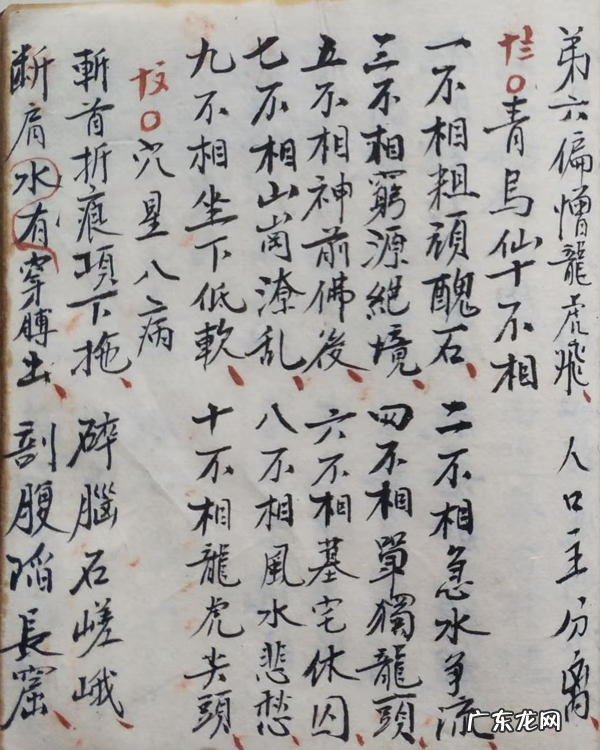 弟六偏憎龍虎飛、人口主分离、
十三〇青烏仙十不相
一不相粗頑醜石、二不相急水争流
三不相窮源絕境、四不相單獨龍頭、
五不相神前佛後、六不相墓宅休囚、
七不相山崗潦乱、八不相風水悲愁、
九不相坐下低軟、十不相龍虎尖頭
〇穴星八病
斬首折痕項下拖、碎腦石嵯峨、
断肩水有穿膊出、剖腹陷長窟、
广东龙网